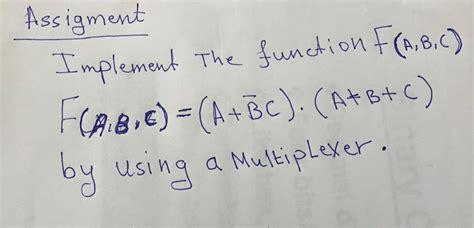 Assigment
Implement The function F(A,B,C)
F(A,B,C) = (A+B̄C).(A+B+C)
by using a Multiplexer.